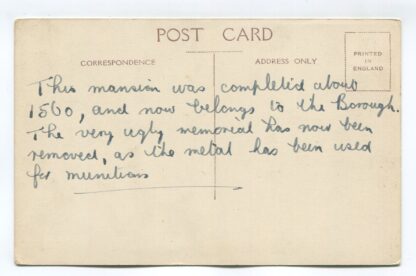 POST CARD
CORRESPONDENCE
ADDRESS ONLY
PRINTED
IN
ENGLAND
This mansion was completed about
1560, and now belongs to the Borough.
The very ugly memorial has now been
removed, as the metal has been used
for munitions